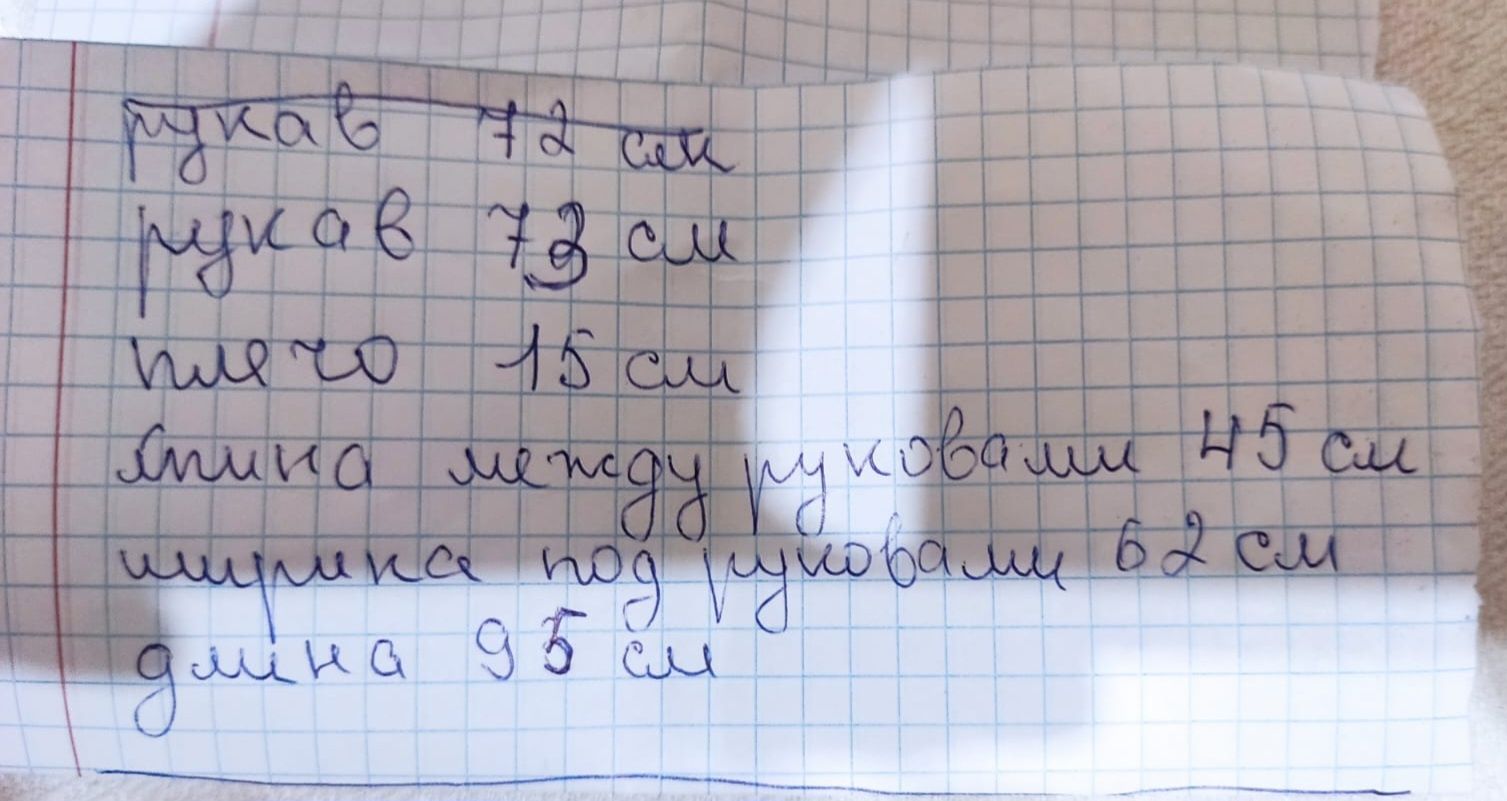 рукав 72 см
рукав 73 см
плечо 15 см
спина между руковами 45 см
ширина под руковами 62 см
длина 95 см